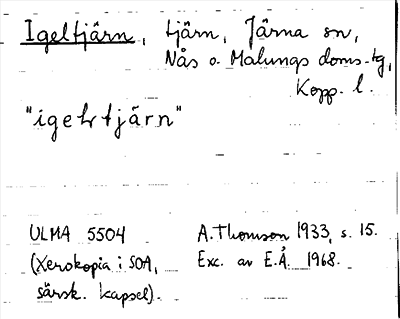 Igeltjärn, tjärn, Järna sn,
Nås o. Malungs doms-tg,
Kopp. l.
"igeltjärn"
ULMA 5504
(Xerokopia i SOA,
särsk. kapsel).
A. Thomson 1933, s. 15.
Exc. av E.Å. 1968.